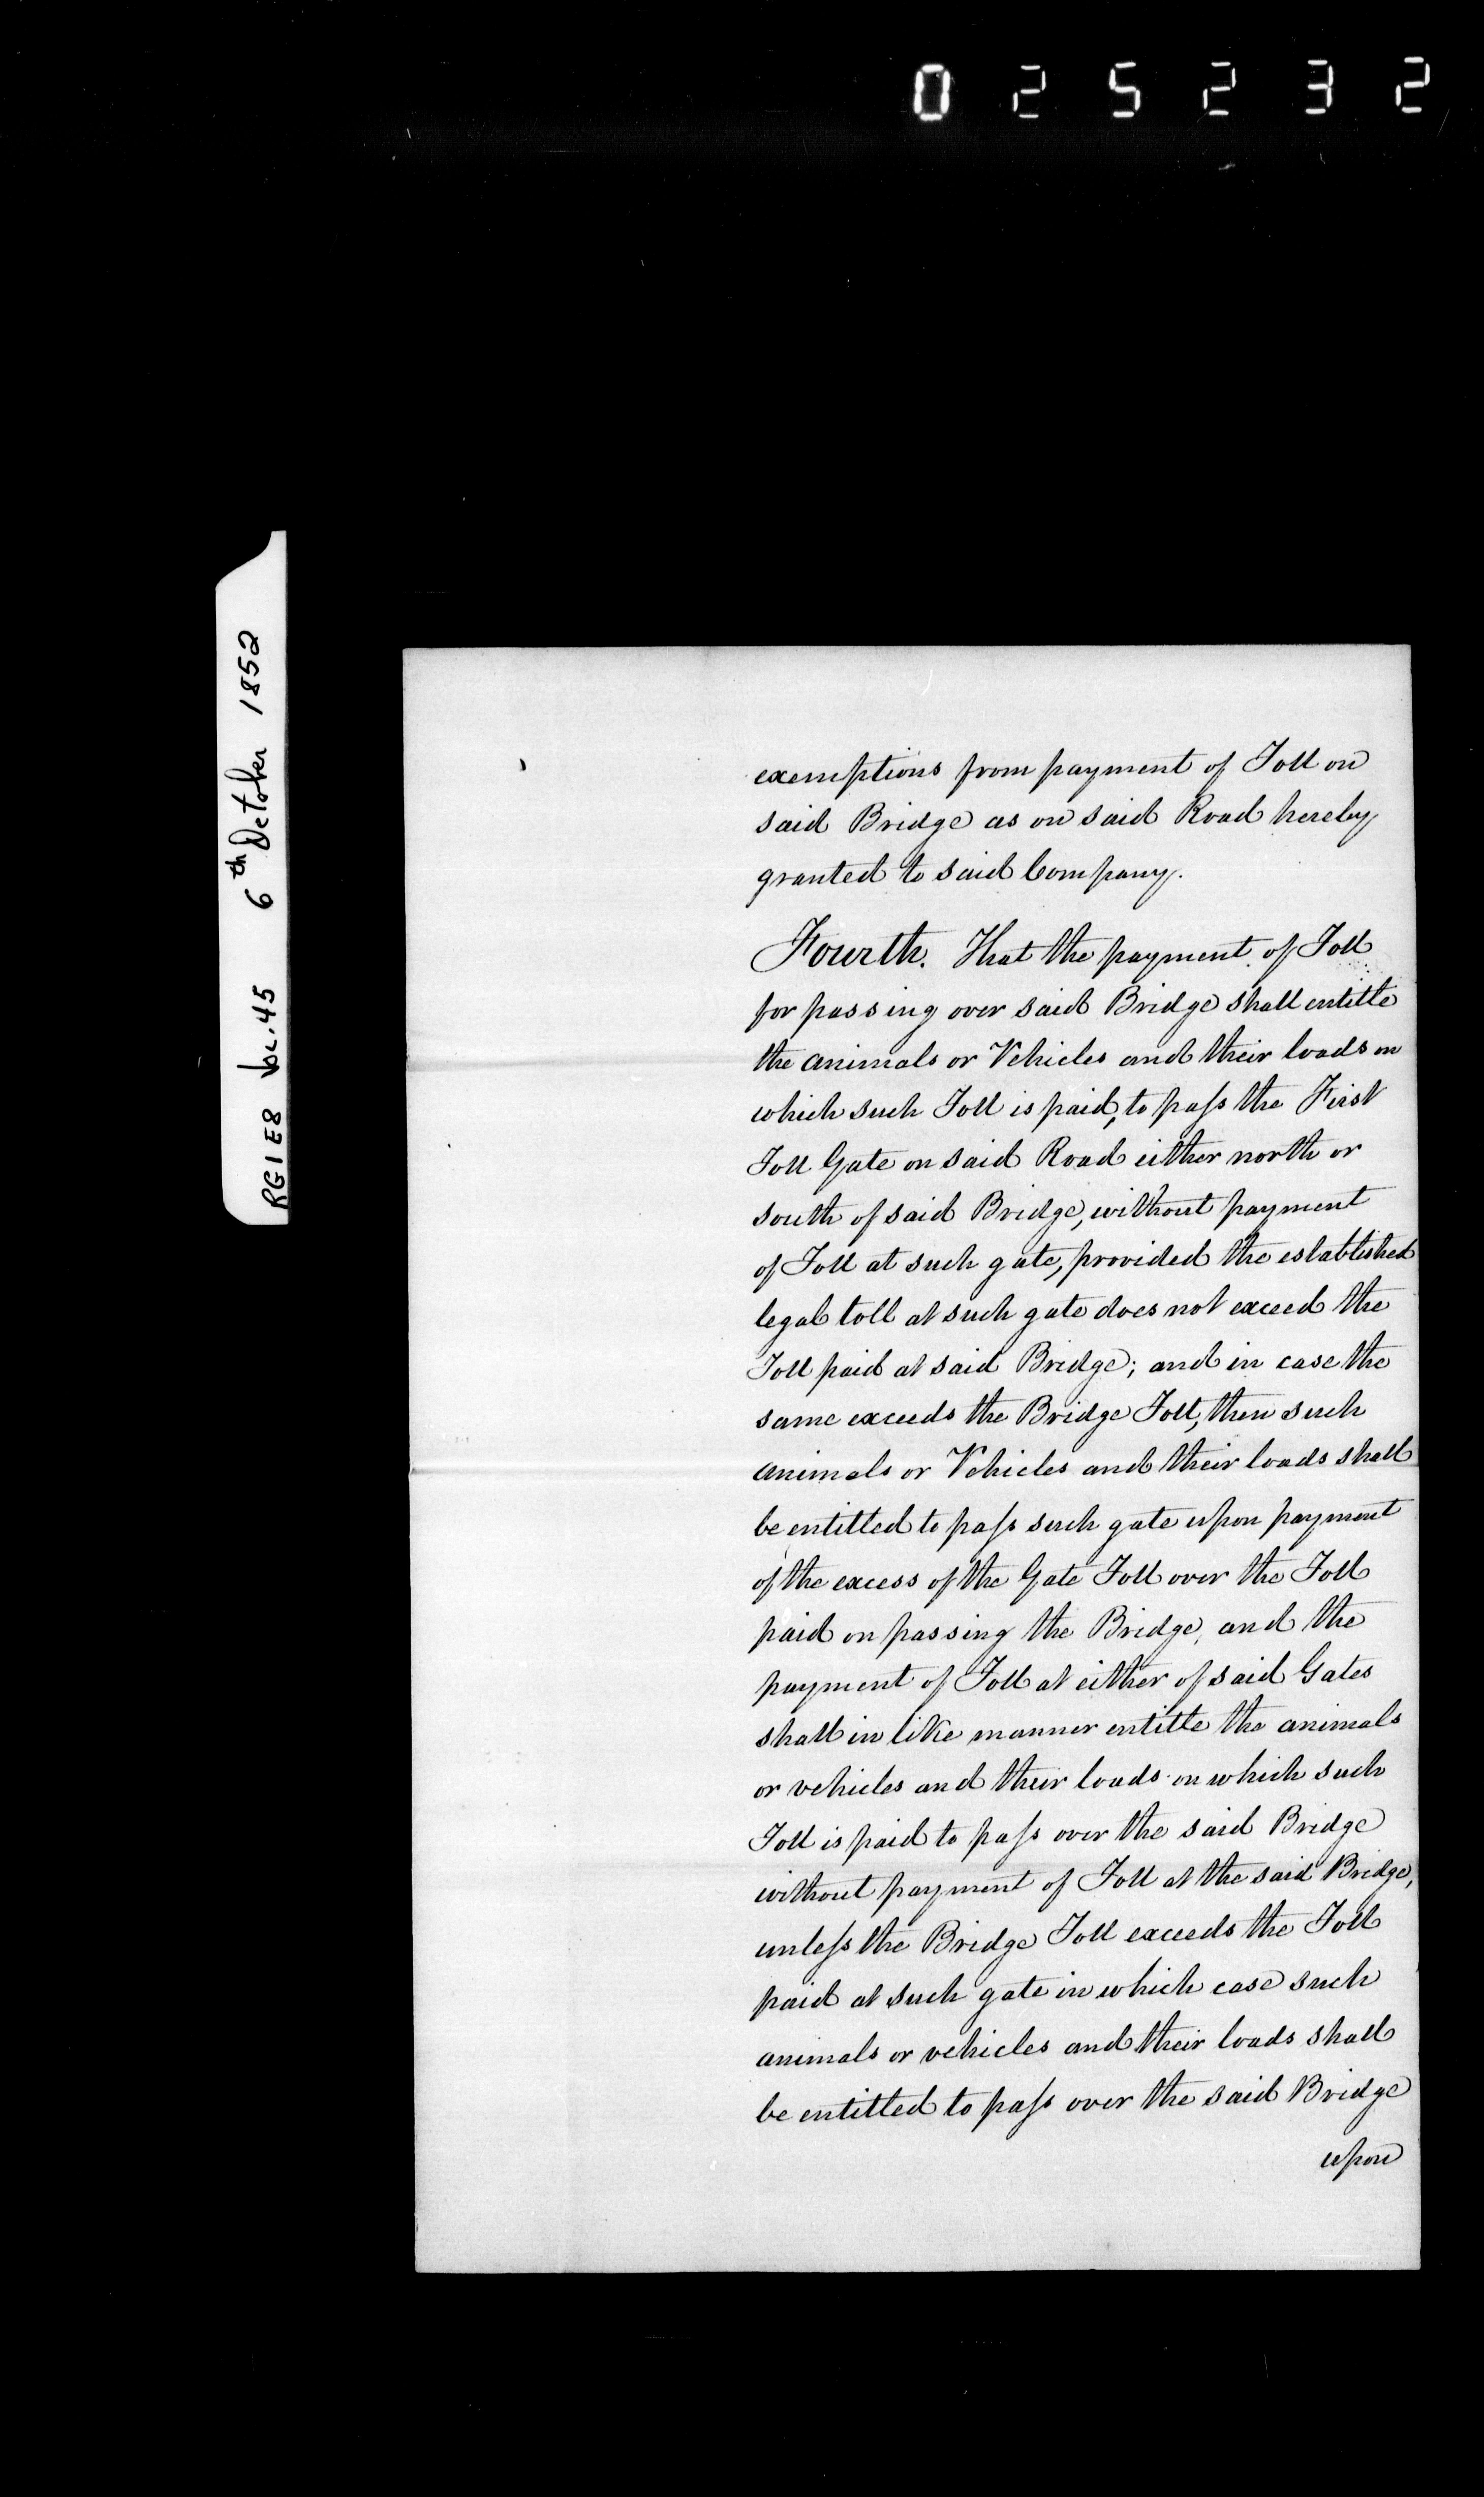 025232
RG1E8 Vol.45 6th October 1852
exemptions from payment of Toll on
said Bridge as on said Road hereby
granted to said Company.
Fourth. That the payment of Toll
for passing over said Bridge shall entitle
the animals or Vehicles and their loads on
which such Toll is paid, to pass the First
Toll Gate on said Road either north or
south of said Bridge, without payment
of Toll at such gate, provided the established
legal toll at such gate does not exceed the
Toll paid at said Bridge; and in case the
same exceeds the Bridge Toll, then such
animals or Vehicles and their loads shall
be entitled to pass such gate upon payment
of the excess of the Gate Toll over the Toll
paid on passing the Bridge, and the
payment of Toll at either of said Gates
shall in like manner entitle the animals
or vehicles and their loads on which such
Toll is paid to pass over the said Bridge
without payment of Toll at the said Bridge,
unless the Bridge Toll exceeds the Toll
paid at such gate in which case such
animals or vehicles and their loads shall
be entitled to pass over the said Bridge
upon